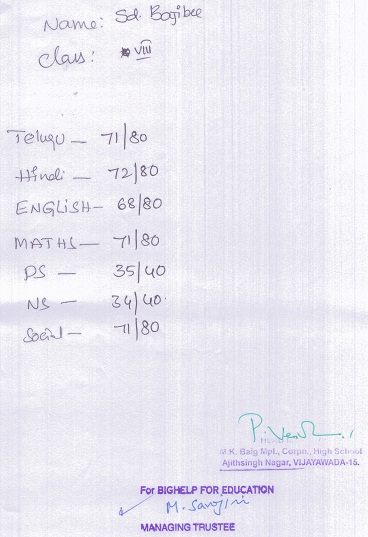 Name: Sd. Bajibee
Class: VIII
Telugu — 71/80
Hindi — 72/80
ENGLISH — 68/80
MATHS — 71/80
PS — 35/40
NS — 34/40
Social — 71/80
P. Venk
M.K. Baig Mpl., Corpn., High School
Ajithsingh Nagar, VIJAYAWADA-15.
For BIGHELP FOR EDUCATION
M. Sarojini
MANAGING TRUSTEE